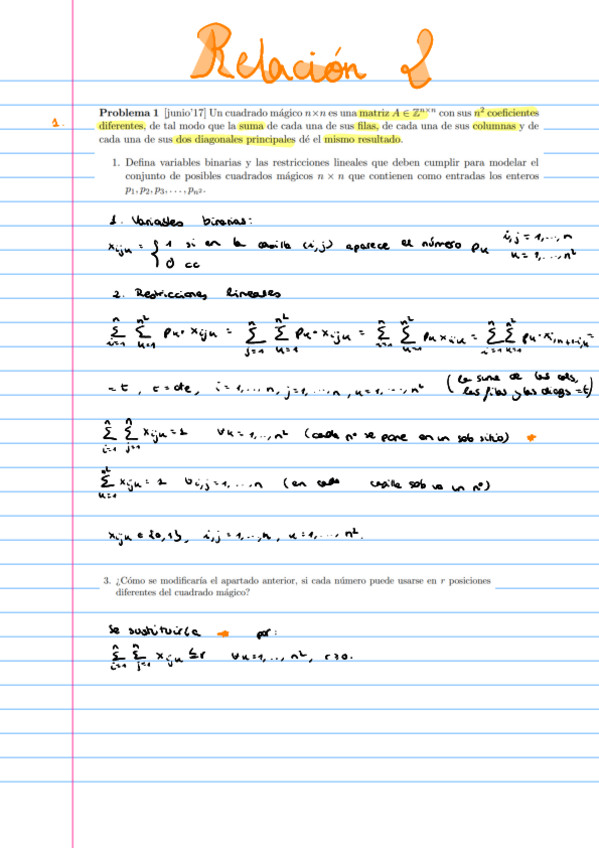 Relación 2
1. Problema 1 [junio'17] Un cuadrado mágico n×n es una matriz A ∈ ℤⁿˣⁿ con sus n² coeficientes
diferentes, de tal modo que la suma de cada una de sus filas, de cada una de sus columnas y de
cada una de sus dos diagonales principales dé el mismo resultado.
1. Defina variables binarias y las restricciones lineales que deben cumplir para modelar el
conjunto de posibles cuadrados mágicos n × n que contienen como entradas los enteros
p₁, p₂, p₃, . . . , pₙ².
1. Variables binarias:
xᵢⱼₖ = { 1 si en la casilla (i,j) aparece el número pₖ i,j = 1,..,n
0 cc k = 1,...,n²
2. Restricciones lineales
∑ᵢ₌₁ⁿ ∑ₖ₌₁ⁿ² pₖ·xᵢⱼₖ = ∑ⱼ₌₁ⁿ ∑ₖ₌₁ⁿ² pₖ·xᵢⱼₖ = ∑ᵢ₌₁ⁿ ∑ₖ₌₁ⁿ² pₖ xᵢᵢₖ = ∑ᵢ₌₁ⁿ ∑ₖ₌₁ⁿ² pₖ·xᵢ,ₙ₊₁₋ᵢ,ₖ =
= t, t = cte, i = 1,...,n, j = 1,...,n, k = 1,...,n² (la suma de las cols, las filas y las diags = t)
∑ᵢ₌₁ⁿ ∑ⱼ₌₁ⁿ xᵢⱼₖ = 1 ∀k = 1,..,n² (cada nº se pone en un solo sitio)
∑ₖ₌₁ⁿ² xᵢⱼₖ = 1 ∀i,j = 1,...,n (en cada casilla solo va un nº)
xᵢⱼₖ ∈ {0,1}, i,j = 1,...,n, k = 1,...,n².
3. ¿Cómo se modificaría el apartado anterior, si cada número puede usarse en r posiciones
diferentes del cuadrado mágico?
Se sustituiría → por:
∑ᵢ₌₁ⁿ ∑ⱼ₌₁ⁿ xᵢⱼₖ ≤ r ∀k = 1,..,n², r≥0.